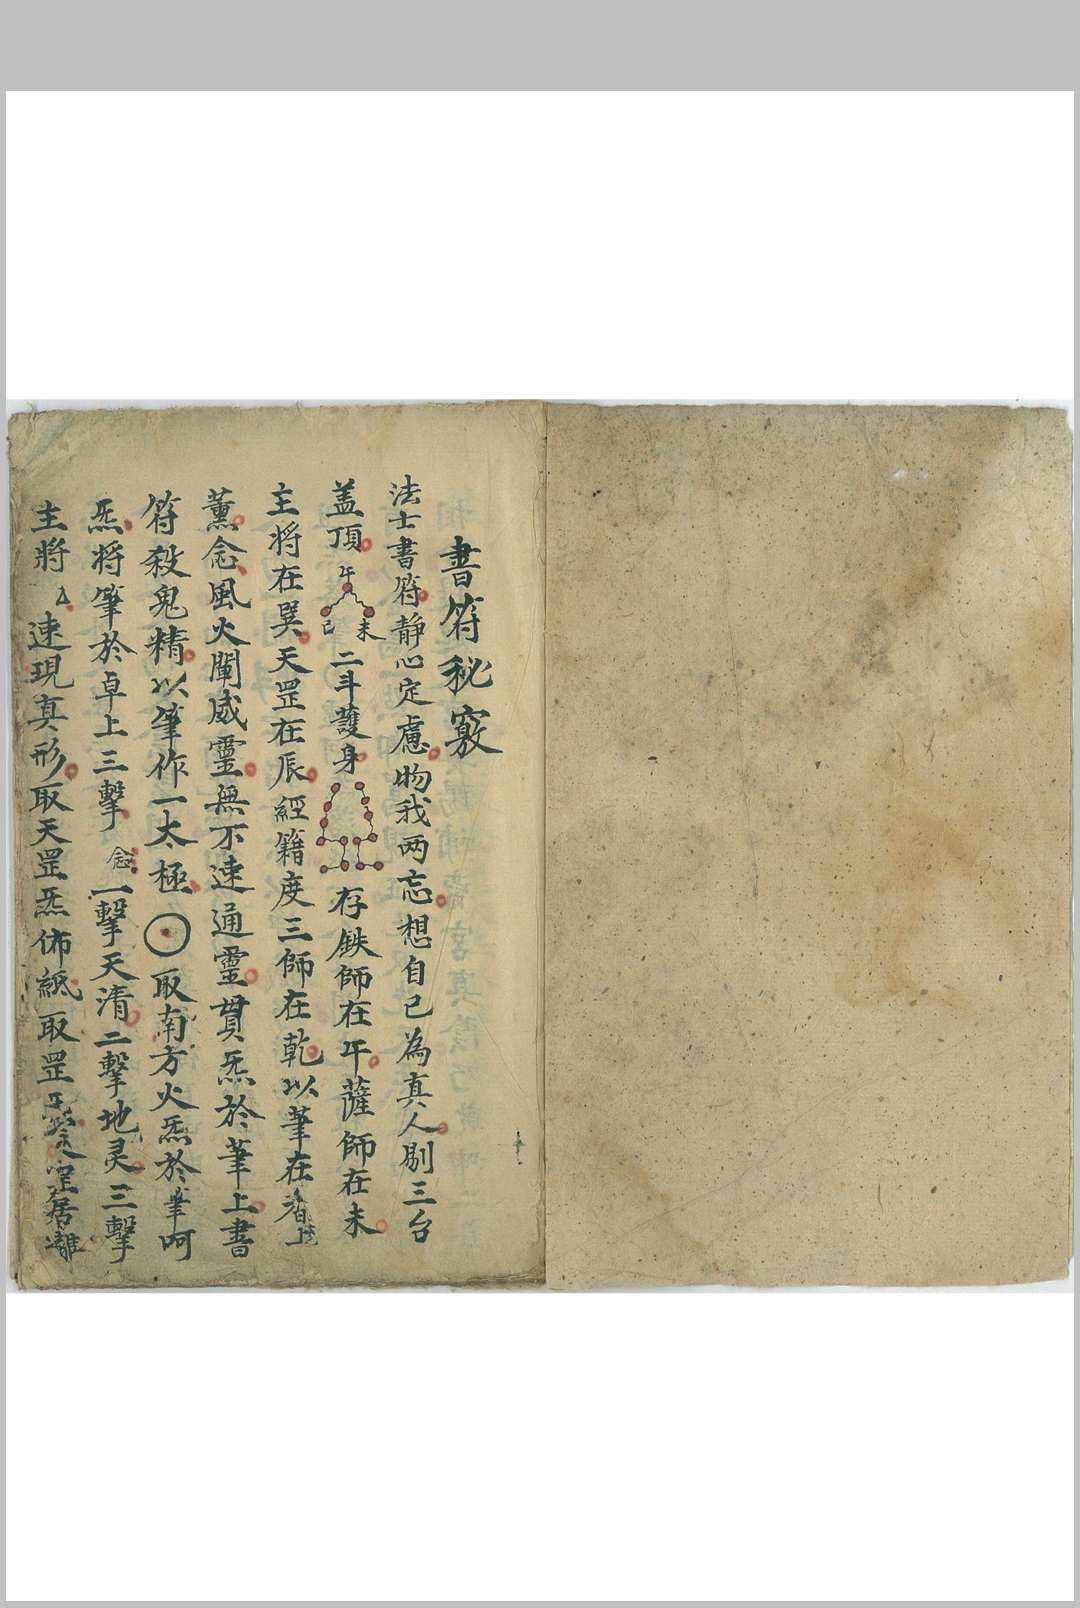 書符秘竅
法士書符静心定慮物我两忘想自己為真人剔三台
盖頂 午 未 二斗護身 存鉄師在午薩師在未
主將在巽天罡在辰經籍度三師在乾以筆在 上
薰念風火闡威靈無不速通靈貫炁於筆上書
符殺鬼精以筆作一太極 取南方火炁於筆呵
炁將筆於卓上三擊 念 一擊天清二擊地灵三擊
主將 速現真形取天罡炁佈紙取罡炁 罡居離